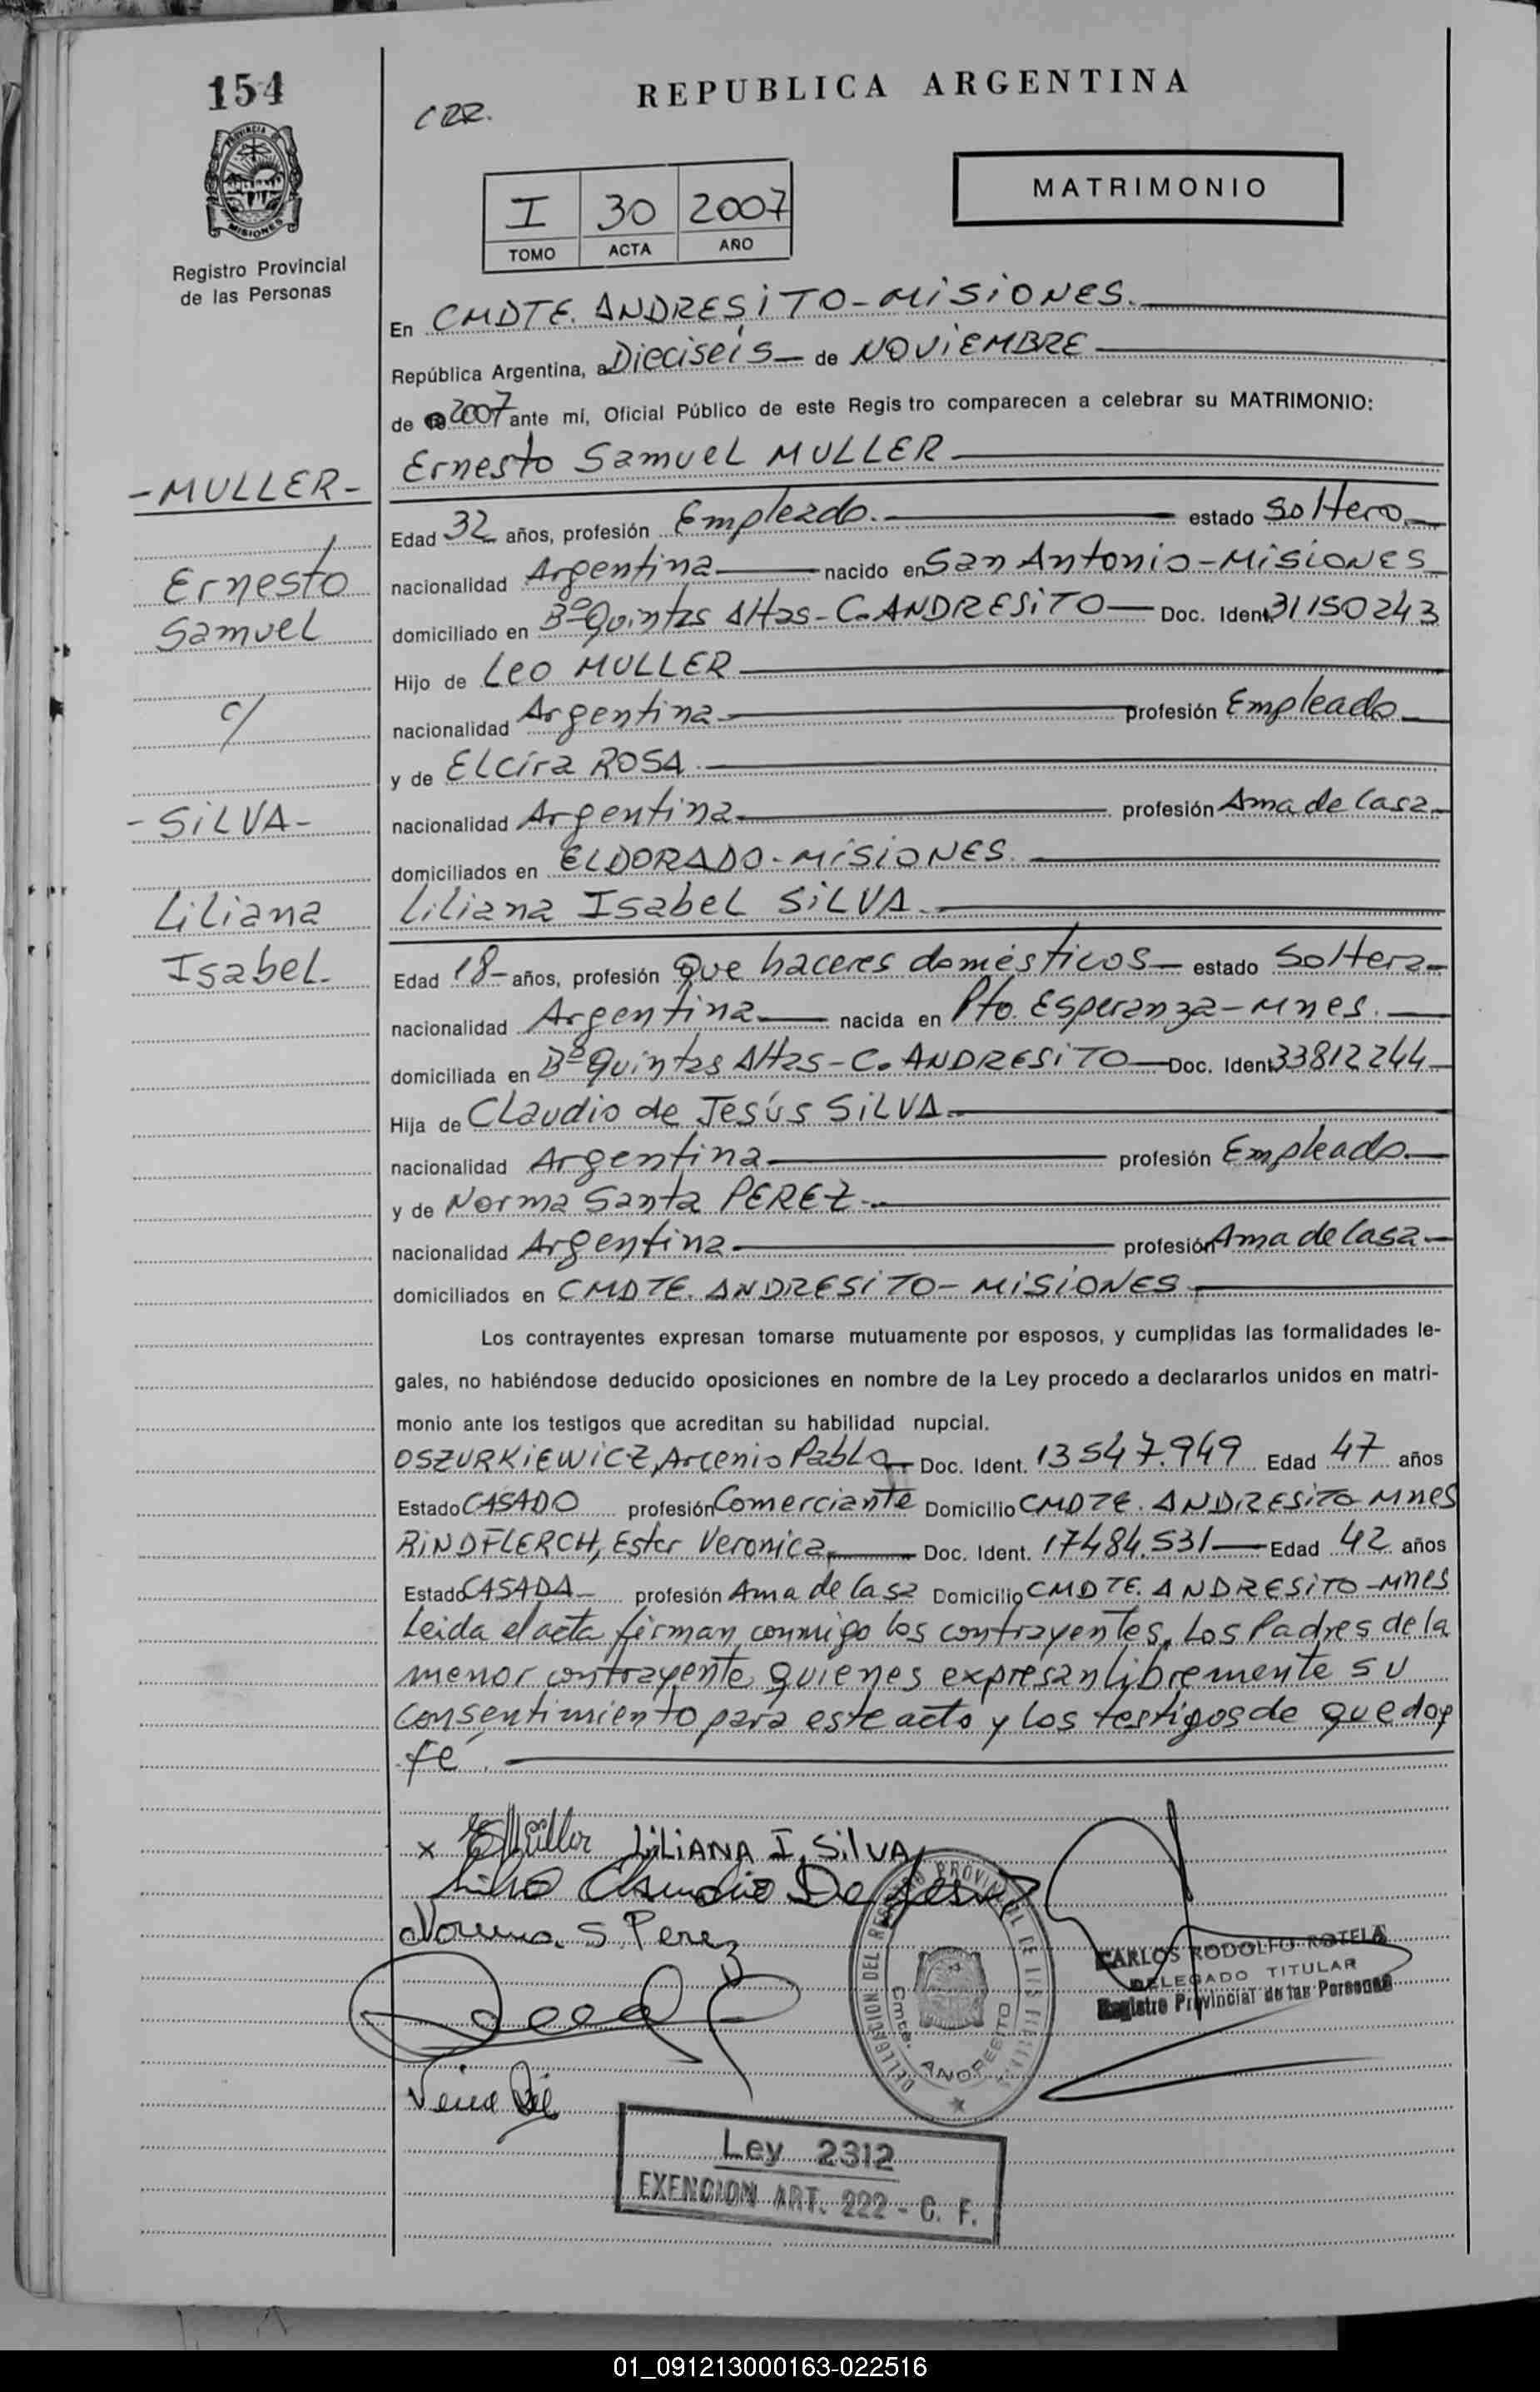 154
CRR.
REPUBLICA ARGENTINA
PROVINCIA DE
MISIONES
Registro Provincial
de las Personas
I 30 2007
TOMO ACTA AÑO
MATRIMONIO
En CMDTE. ANDRESiTO-MiSiONES.
República Argentina, a Dieciseis de NOViEMBRE
de 2007 ante mí, Oficial Público de este Regis tro comparecen a celebrar su MATRIMONIO:
Ernesto Samuel MULLER
-MULLER-
Edad 32 años, profesión Empleado. estado Soltero
Ernesto
nacionalidad Argentina nacido en San Antonio-MiSiONES
Samuel
domiciliado en Bº Quintas Altas-C. ANDRESiTO Doc. Ident. 31150243
Hijo de Leo MULLER
c/
nacionalidad Argentina profesión Empleado
y de Elcira ROSA
-SiLVA-
nacionalidad Argentina profesión Ama de Casa
domiciliados en ELDORADO-MiSiONES.
Liliana
Liliana Isabel SiLVA.
Isabel.
Edad 18- años, profesión Que haceres domésticos estado Soltera
nacionalidad Argentina nacida en Pto. Esperanza-Mnes.
domiciliada en Bº Quintas Altas-C. ANDRESiTO Doc. Ident. 33812244
Hija de Claudio de Jesús SiLVA
nacionalidad Argentina profesión Empleado
y de Norma Santa PEREZ
nacionalidad Argentina profesión Ama de Casa
domiciliados en CMDTE. ANDRESiTO-MiSiONES
Los contrayentes expresan tomarse mutuamente por esposos, y cumplidas las formalidades le-
gales, no habiéndose deducido oposiciones en nombre de la Ley procedo a declararlos unidos en matri-
monio ante los testigos que acreditan su habilidad nupcial.
OSZURKiEWiCZ, Arcenio Pablo Doc. Ident. 13547.949 Edad 47 años
Estado CASADO profesión Comerciante Domicilio CMDTE. ANDRESiTO Mnes
RiNDFLERCH, Ester Veronica Doc. Ident. 17484.531 Edad 42 años
Estado CASADA profesión Ama de Casa Domicilio CMDTE. ANDRESiTO-Mnes
Leida el acta firman conmigo los contrayentes, Los Padres de la
menor contrayente quienes expresan libremente su
consentimiento para este acto y los testigos de que doy
fé.
x EMüller LiLiANA I. SiLVA
Silva Claudio De Jesus
Norma S. Perez
DELEGACION DEL REGISTRO PROVINCIAL DE LAS PERSONAS
Cmte. ANDRESITO
CARLOS RODOLFO ROTELA
DELEGADO TITULAR
Registro Provincial de las Personas
Ley 2312
EXENCION ART. 222 - C. F.
01_091213000163-022516